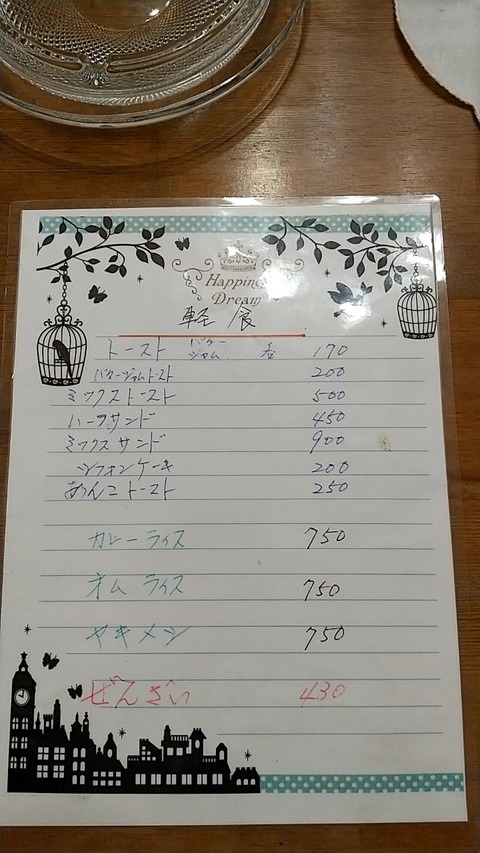 Happiness
Dream
軽食
トースト バター ジャム 各 170
バタージャムトースト 200
ミックストースト 500
ハーフサンド 450
ミックスサンド 900
シフォンケーキ 200
あんこトースト 250
カレーライス 750
オムライス 750
ヤキメシ 750
ぜんざい 430